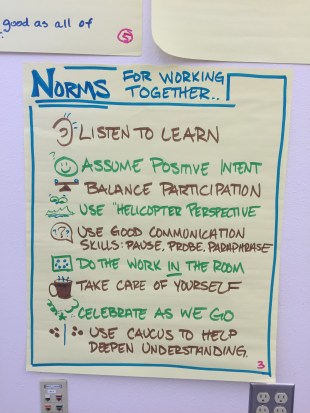 good as all of
5
NORMS FOR WORKING
TOGETHER..
LISTEN TO LEARN
ASSUME POSITIVE INTENT
BALANCE PARTICIPATION
USE "HELICOPTER PERSPECTIVE"
USE GOOD COMMUNICATION
SKILLS: PAUSE, PROBE, PARAPHRASE
DO THE WORK IN THE ROOM
TAKE CARE OF YOURSELF
CELEBRATE AS WE GO
USE CAUCUS TO HELP
DEEPEN UNDERSTANDING.
3